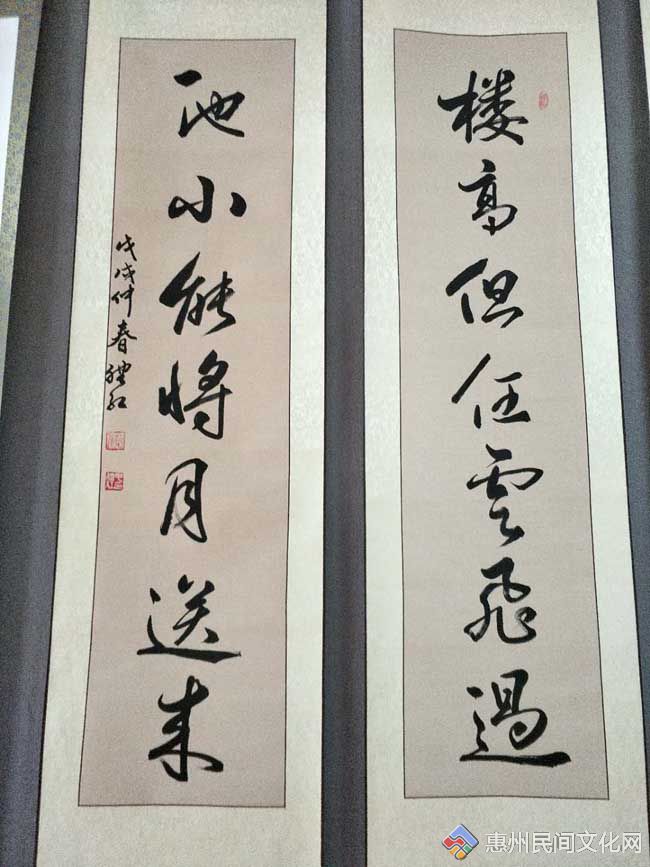 楼高但任雲飛過
池小能将月送来
戊戌仲春
惠州民间文化网